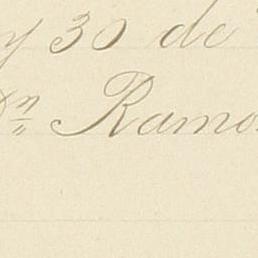 y 30 de
Dn Ramo